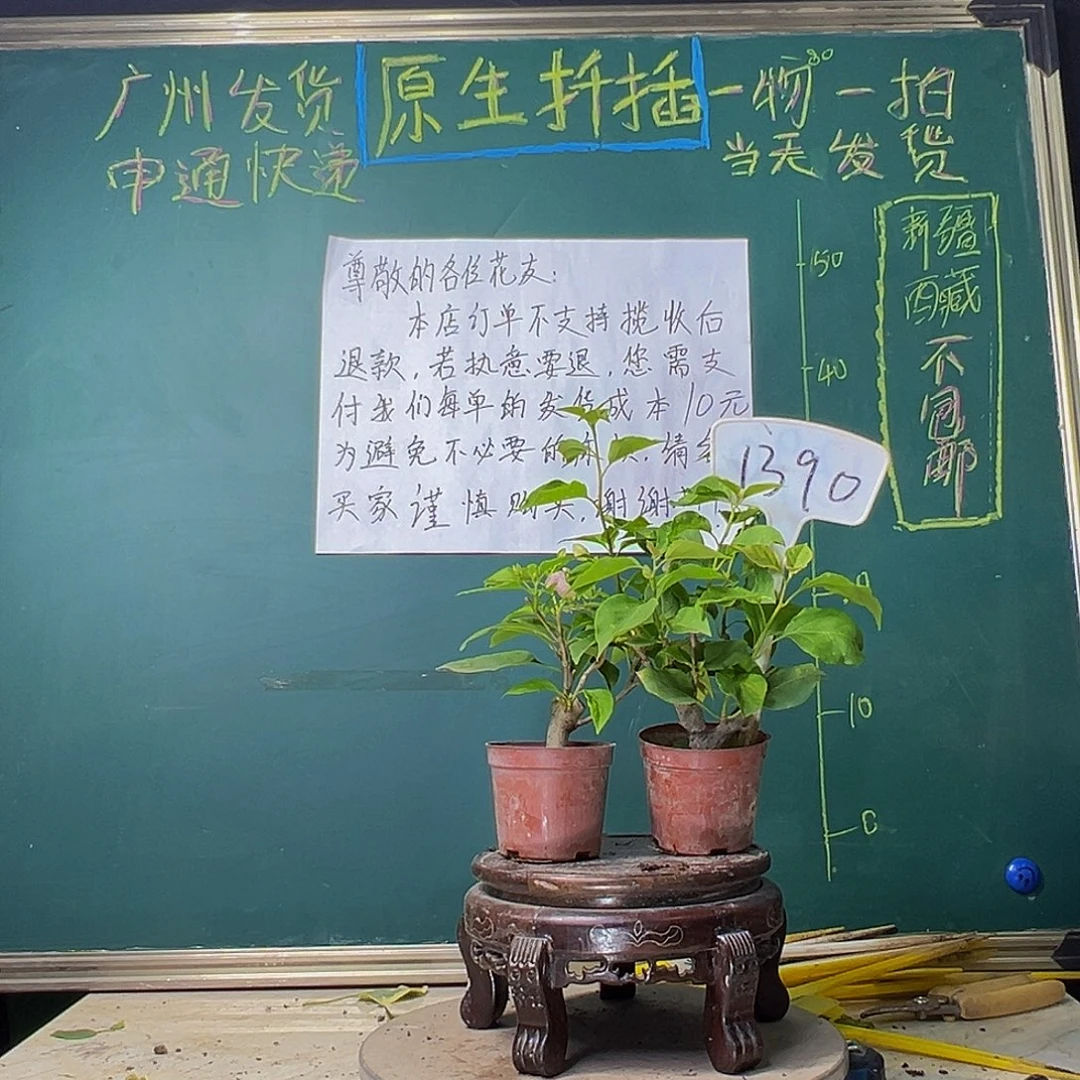 广州发货
原生扦插
一物一拍
80
申通快递
当天发货
新疆
西藏
不包邮
50
40
10
0
尊敬的各位花友:
本店订单不支持揽收后
退款,若执意要退,您需支
付我们每单的发货成本10元
为避免不必要的
买家谨慎购买,谢谢
1390